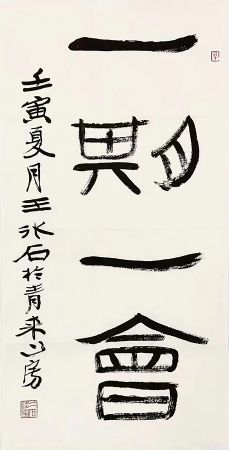 一期一會
壬寅夏月王冰石於青來山房